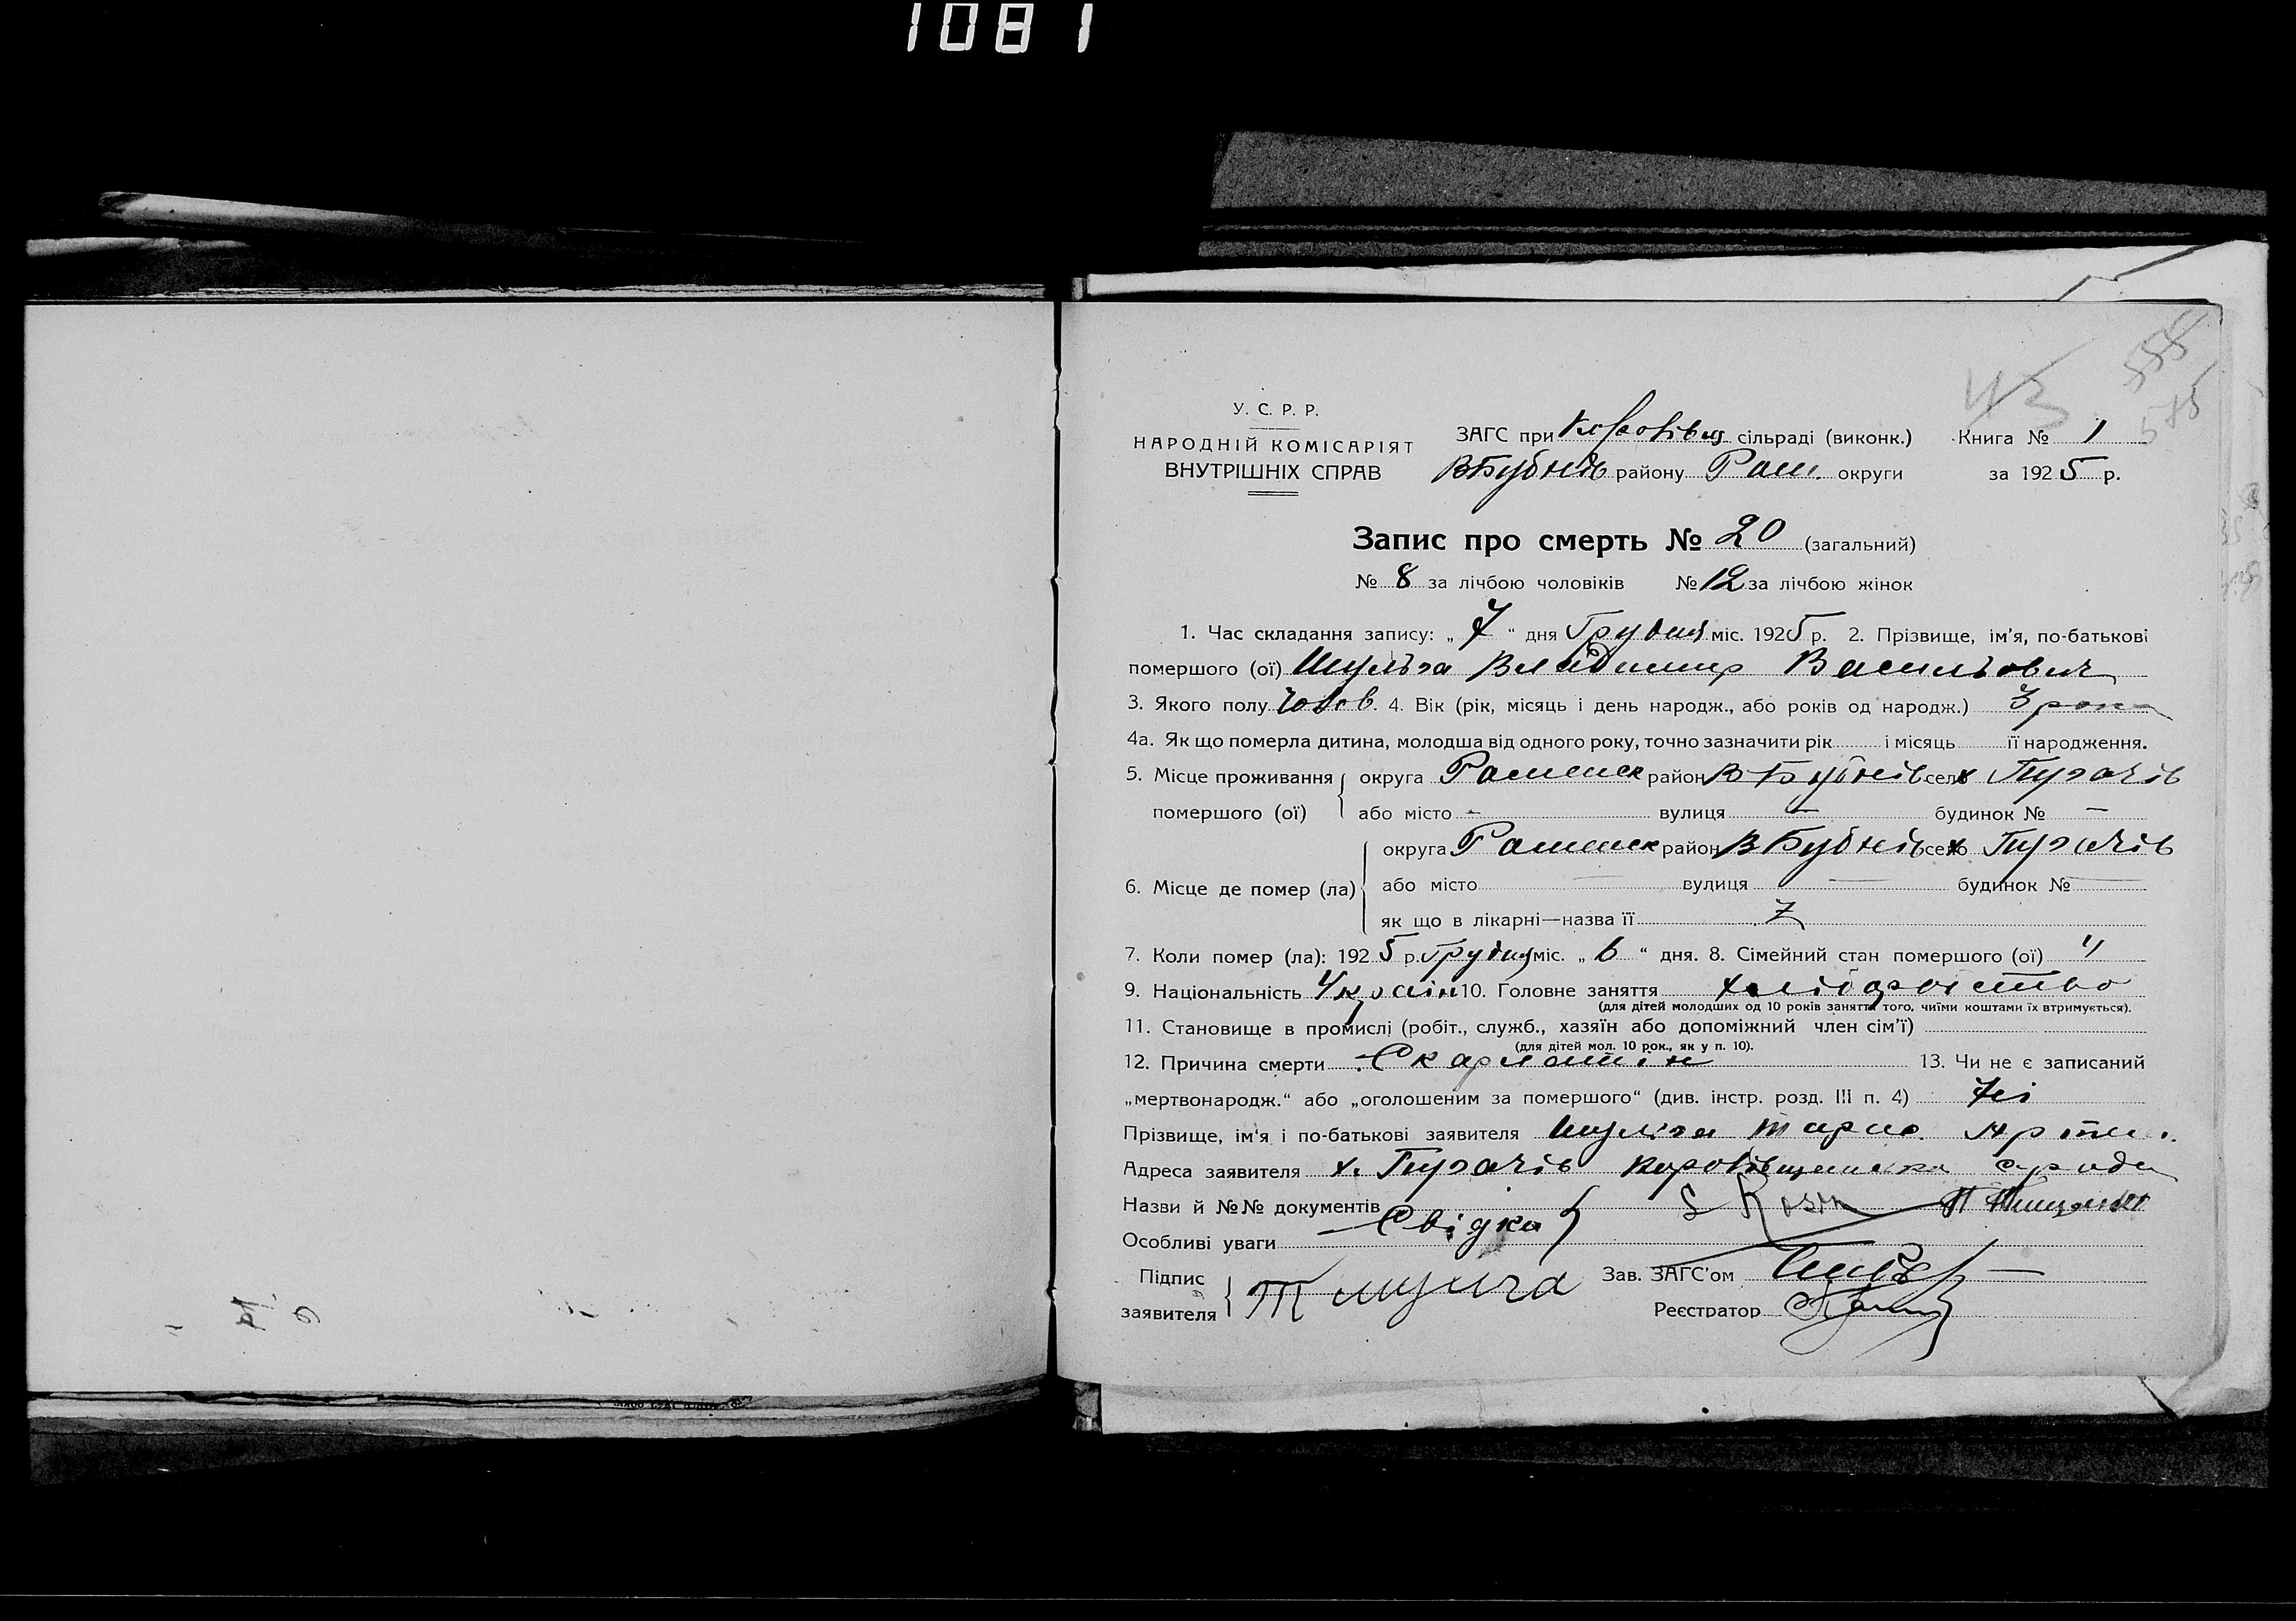 1081
43
558
575
У. С. Р. Р.
НАРОДНІЙ КОМІСАРІЯТ
ВНУТРІШНІХ СПРАВ
ЗАГС при сільраді (виконк.) Книга № 1
ВБубнів району Ром. округи за 1925 р.
Запис про смерть № 20 (загальний)
№ 8 за лічбою чоловіків № 12 за лічбою жінок
1. Час складання запису: „ 7 “ дня Грудня міс. 1925 р. 2. Прізвище, ім'я, по-батькові
помершого (ої) Шульга Владимир Васильович
3. Якого полу чолов. 4. Вік (рік, місяць і день народж., або років од народж.) 3 роки
4а. Як що померла дитина, молодша від одного року, точно зазначити рік і місяць її народження.
5. Місце проживання округа Роменск район ВБубнів село х Пугачів
помершого (ої) або місто - вулиця — будинок № —
округа Роменск район ВБубнів село х Пугачів
6. Місце де помер (ла) або місто — вулиця — будинок № —
як що в лікарні—назва її
7. Коли помер (ла): 1925 р. Грудня міс. „ 6 “ дня. 8. Сімейний стан помершого (ої) "
9. Національність Україн 10. Головне заняття хліборобство
(для дітей молодших од 10 років заняття того, чиїми коштами їх втримується).
11. Становище в промислі (робіт., служб., хазяїн або допоміжний член сім'ї)
(для дітей мол. 10 рок., як у п. 10).
12. Причина смерти Скарлатін 13. Чи не є записаний
„мертвонародж.“ або „оголошеним за помершого“ (див. інстр. розд. III п. 4) Ні
Прізвище, ім'я і по-батькові заявителя Шульга
Адреса заявителя х. Пугачів
Назви й №№ документів
Свідки
Особливі уваги
Підпис
заявителя Т Шульга
Зав. ЗАГС'ом
Реєстратор